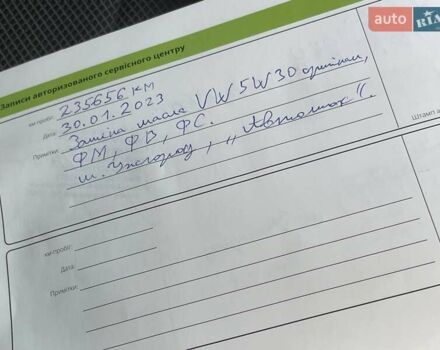 auto RIA
Записи авторизованого сервісного центру
км-пробіг: 235656 км
Дата: 30.01.2023
Примітки: Заміна масла VW 5W30 оригінал,
ФМ, ФВ, ФС.
м. Ужгород, „Автошок“.
Штамп а
км-пробіг:
Дата:
Примітки: